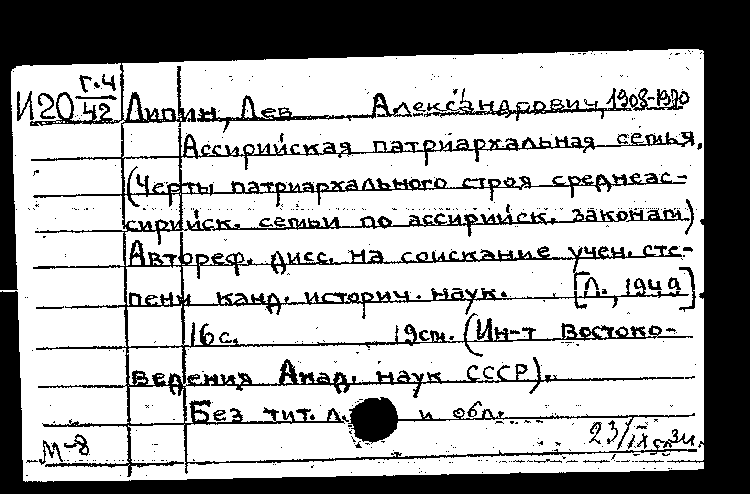 И20 Г.4/42 Липин, Лев Александрович, 1908-1970
Ассирийская патриархальная семья.
(Черты патриархального строя среднеас-
сирийск. семьи по ассирийск. законам).
Автореф. дисс. на соискание учен. сте-
пени канд. историч. наук. [Л., 1949].
16 с. 19 см. (Ин-т Востоко-
ведения Акад. наук СССР).
Без тит. л. и обл.
М-8 23/IX